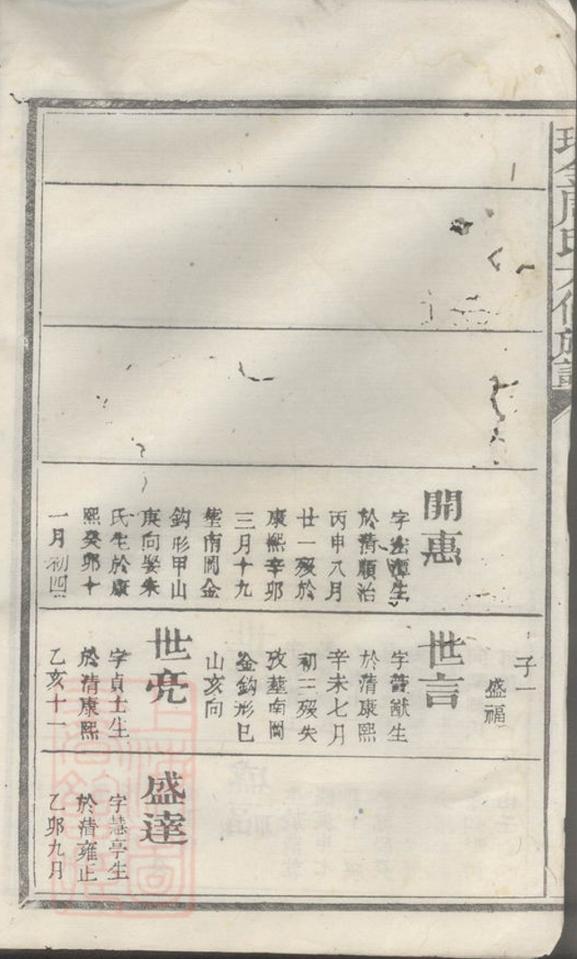 周氏六修族譜
開惠
字 潭生
於清順治
丙申八月
廿一殁於
康熙辛卯
三月十九
塟南岡金
鈎形甲山
庚向娶朱
氏生於康
熙癸卯十
一月初四
子一
盛福
世言
字 猷生
於清康熙
辛未七月
初三殁失
攷塟南岡
金鈎形巳
山亥向
世亮
字貞士生
於清康熙
乙亥十一
盛達
字慧亭生
於清雍正
乙卯九月